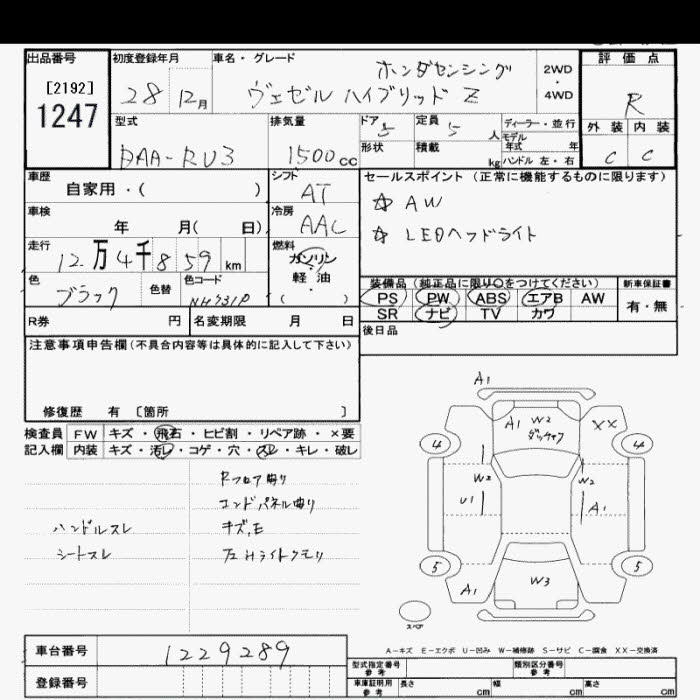 出品番号 初度登録年月 車名・グレード 評価点
[2192]
1247
28 12月
ホンダセンシング
ヴェゼル ハイブリッド Z
2WD
・
4WD
R
外装 内装
C C
型式 排気量 ドア 定員 ディーラー・並行
DAA-RU3 1500cc 5 5人
モデル年式 年
形状 積載 kg ハンドル 左・右
車歴 シフト セールスポイント (正常に機能するものに限ります)
自家用・( ) AT
☆ AW
☆ LEDヘッドライト
車検 冷房
年 月( 日) AAC
走行 燃料
12万4千859km ガソリン
軽油
・
( )
色 色替 色コード
ブラック NH731P
装備品 (純正品に限り○をつけてください) 新車保証書
PS PW ABS エアB AW 有・無
SR ナビ TV カワ
R券 円 名変期限 月 日 後日品
注意事項申告欄(不具合内容等は具体的に記入して下さい)
修復歴 有 〔箇所 〕
検査員 FW キズ・飛石・ヒビ割・リペア跡・×要
記入欄 内装 キズ・汚レ・コゲ・穴・スレ・キレ・破レ
Rフロア曲り
エンドパネル曲り
ハンドルスレ キズ,E
シートスレ Hライトクモリ
A1
A1 W2 XX
4 4
W2 W2
U1 A1
5 5
A1 W3
スペア
A-キズ E-エクボ U-凹み W-補修跡 S-サビ C-腐食 XX-交換済
車台番号 1229289
登録番号
型式指定番号 参考 類別区分番号 参考
車庫証明用 参考 長さ cm 幅 cm 高さ cm